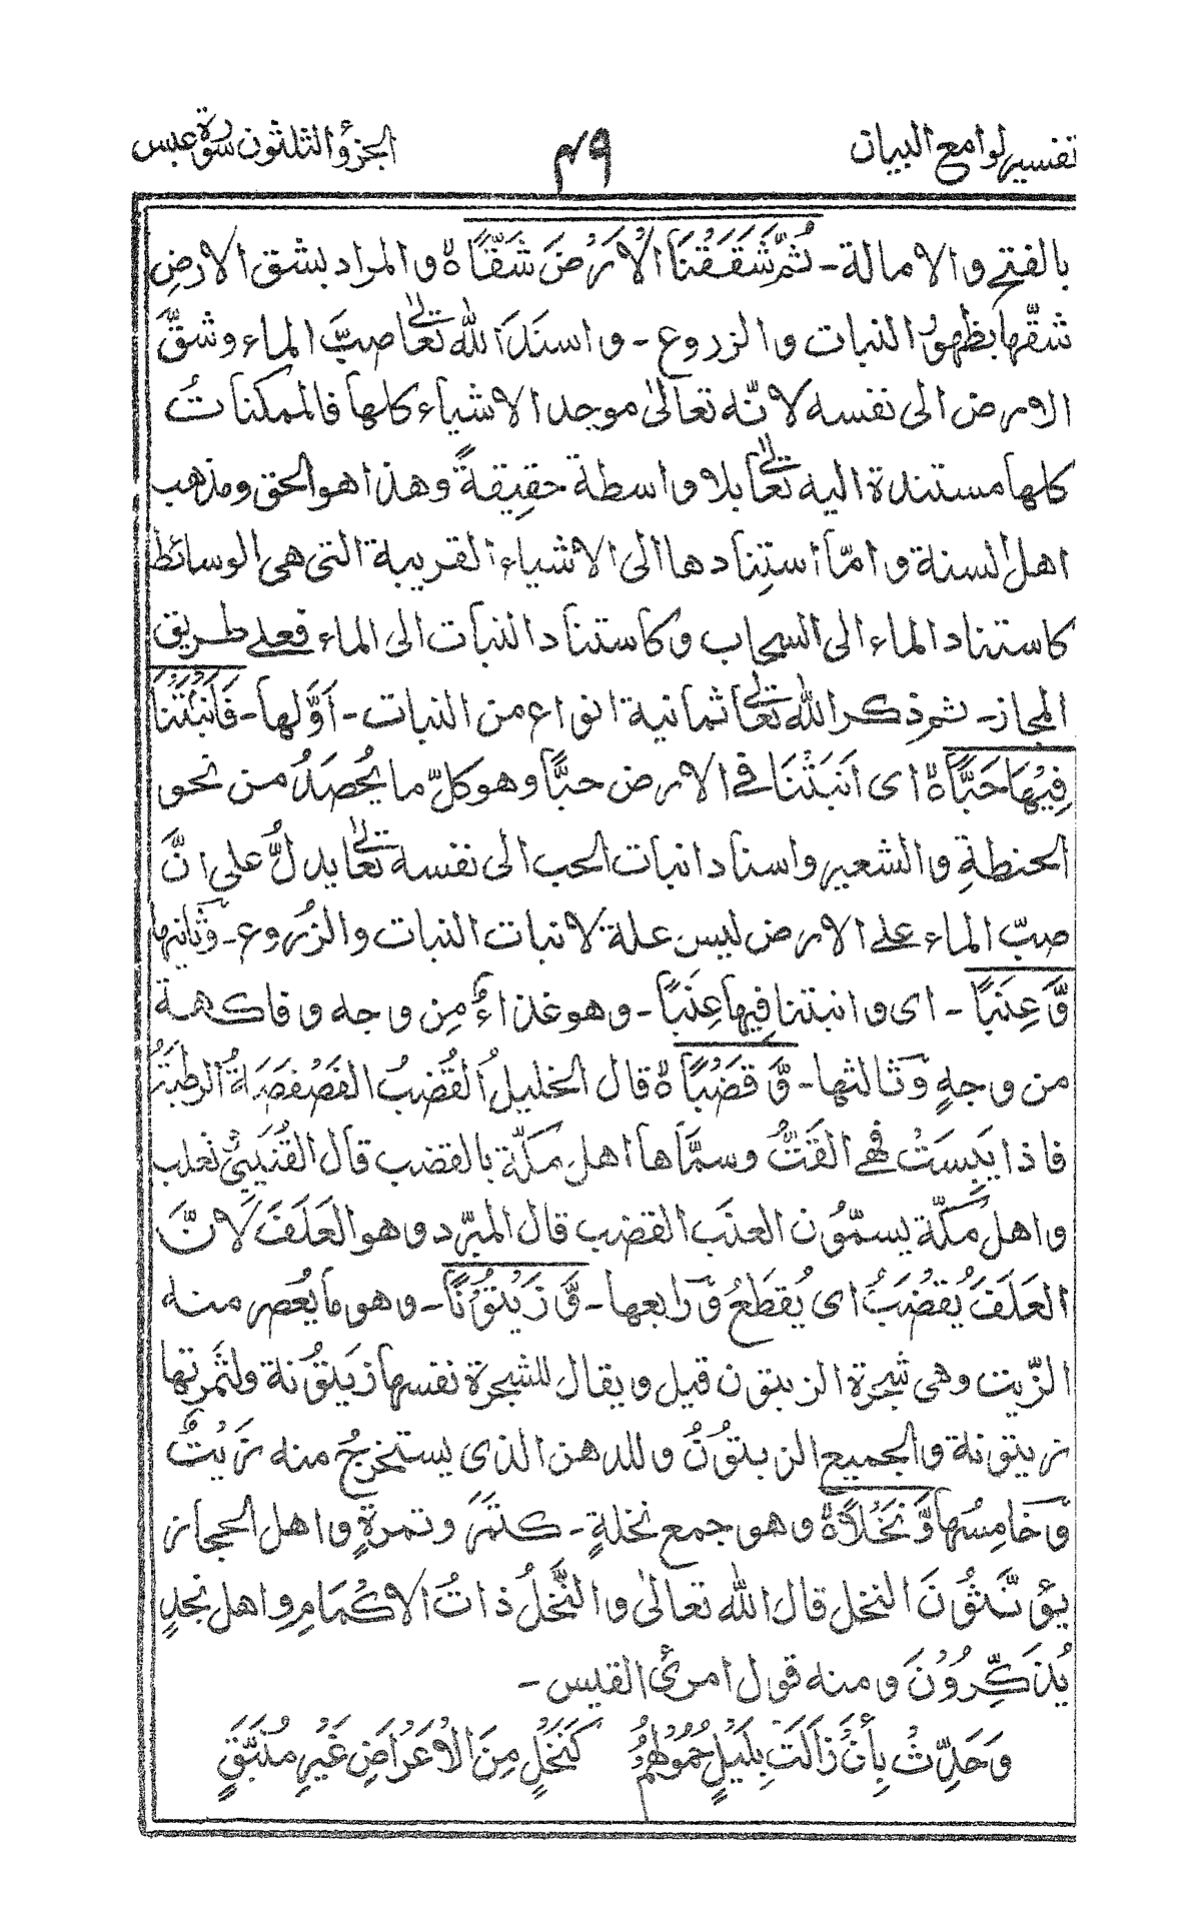 تفسير لوامع البيان ٤٩ الجزؤ الثلثون سورة عبس
بالفتح والامالة ـ ثُمَّ شَقَقْنَا الْاَرْضَ شَقًّا ۙ والمراد بشق الارضِ
شقّها بظهورُ النبات والزروع ـ واسنَدَ الله تعالىٰ صبَّ الماء وشقَّ
الارض الى نفسه لانّه تعالىٰ موجد الاشياء كلها فالممكنات
كلها مستندة اليه تعالىٰ بلا واسطة حقيقةً وهذا هو الحق ومذهب
اهل السنة وامّا استِنادها الى الاشياء القريبة التى هى الوسائط
كاستناد الماء الى السحاب وكاستناد النبات الى الماء فعلى طريق
المجاز ـ ثم ذكر الله تعالىٰ ثمانية انواع من النبات ـ اَوَّلها ـ فَاَنْبَتْنَا
فِيْهَا حَبًّا ۙ اى اَنبَتْنَا فى الارض حبًّا وهو كلّ ما يُحْصَدُ من نحو
الحنطةِ والشعير واسناد انبات الحب الى نفسه تعالىٰ يدلُّ على انَّ
صبّ الماء على الارض ليس علة لانبات النبات والزُروع ـ وثانيها
وَّعِنَبًا ـ اى وانبتنا فِيها عِنَبًا ـ وهو غذاءٌ مِن وجه وفاكهة
من وجهٍ وثالثها ـ وَّقَضْبًا ۙ قال الخليلُ القُضبُ الفَصْفَصَةُ الرطبَةُ
فاذا يَبِسَتْ فهى القَتُّ وسمَّاها اهل مكّة بالقضب قال القُتَيبِىُّ ثعلب
واهل مكّة يسمّون العنَب القضب قال المبرّد وهو العَلَفَ لانَّ
العَلَفَ يُقضَبُ اى يُقطَعُ ورابعها ـ وَّزَيْتُوْنًا ـ وهو ما يُعْصر منه
الزّيت وهى شجرة الزيتون قيل ويقال للشجرة نفسها زيتُونة ولثمرتها
زيتونة والجميع الزيتُونُ وللدهن الذى يستخرجُ منه زَيْتٌ
وخامِسُها وَّنَخْلًا ۙ وهو جمع نخلةٍ ـ كتمَر وتمرةٍ واهل الحجاز
يؤنَّثُونَ النخل قال الله تعالىٰ والنَّخلُ ذاتُ الاكْمَامِ واهل نجدٍ
يُذَكِّرُوْنَ ومنه قول امرئ القيس ـ
وَحَلِّثْ بِأَنْ زَالَتْ بِلَيْلٍ حُمُوْلُهُمْ كَنَخْلٍ مِنَ الْاَعْرَاضِ غَيْرِ مُنَبَّقٍ